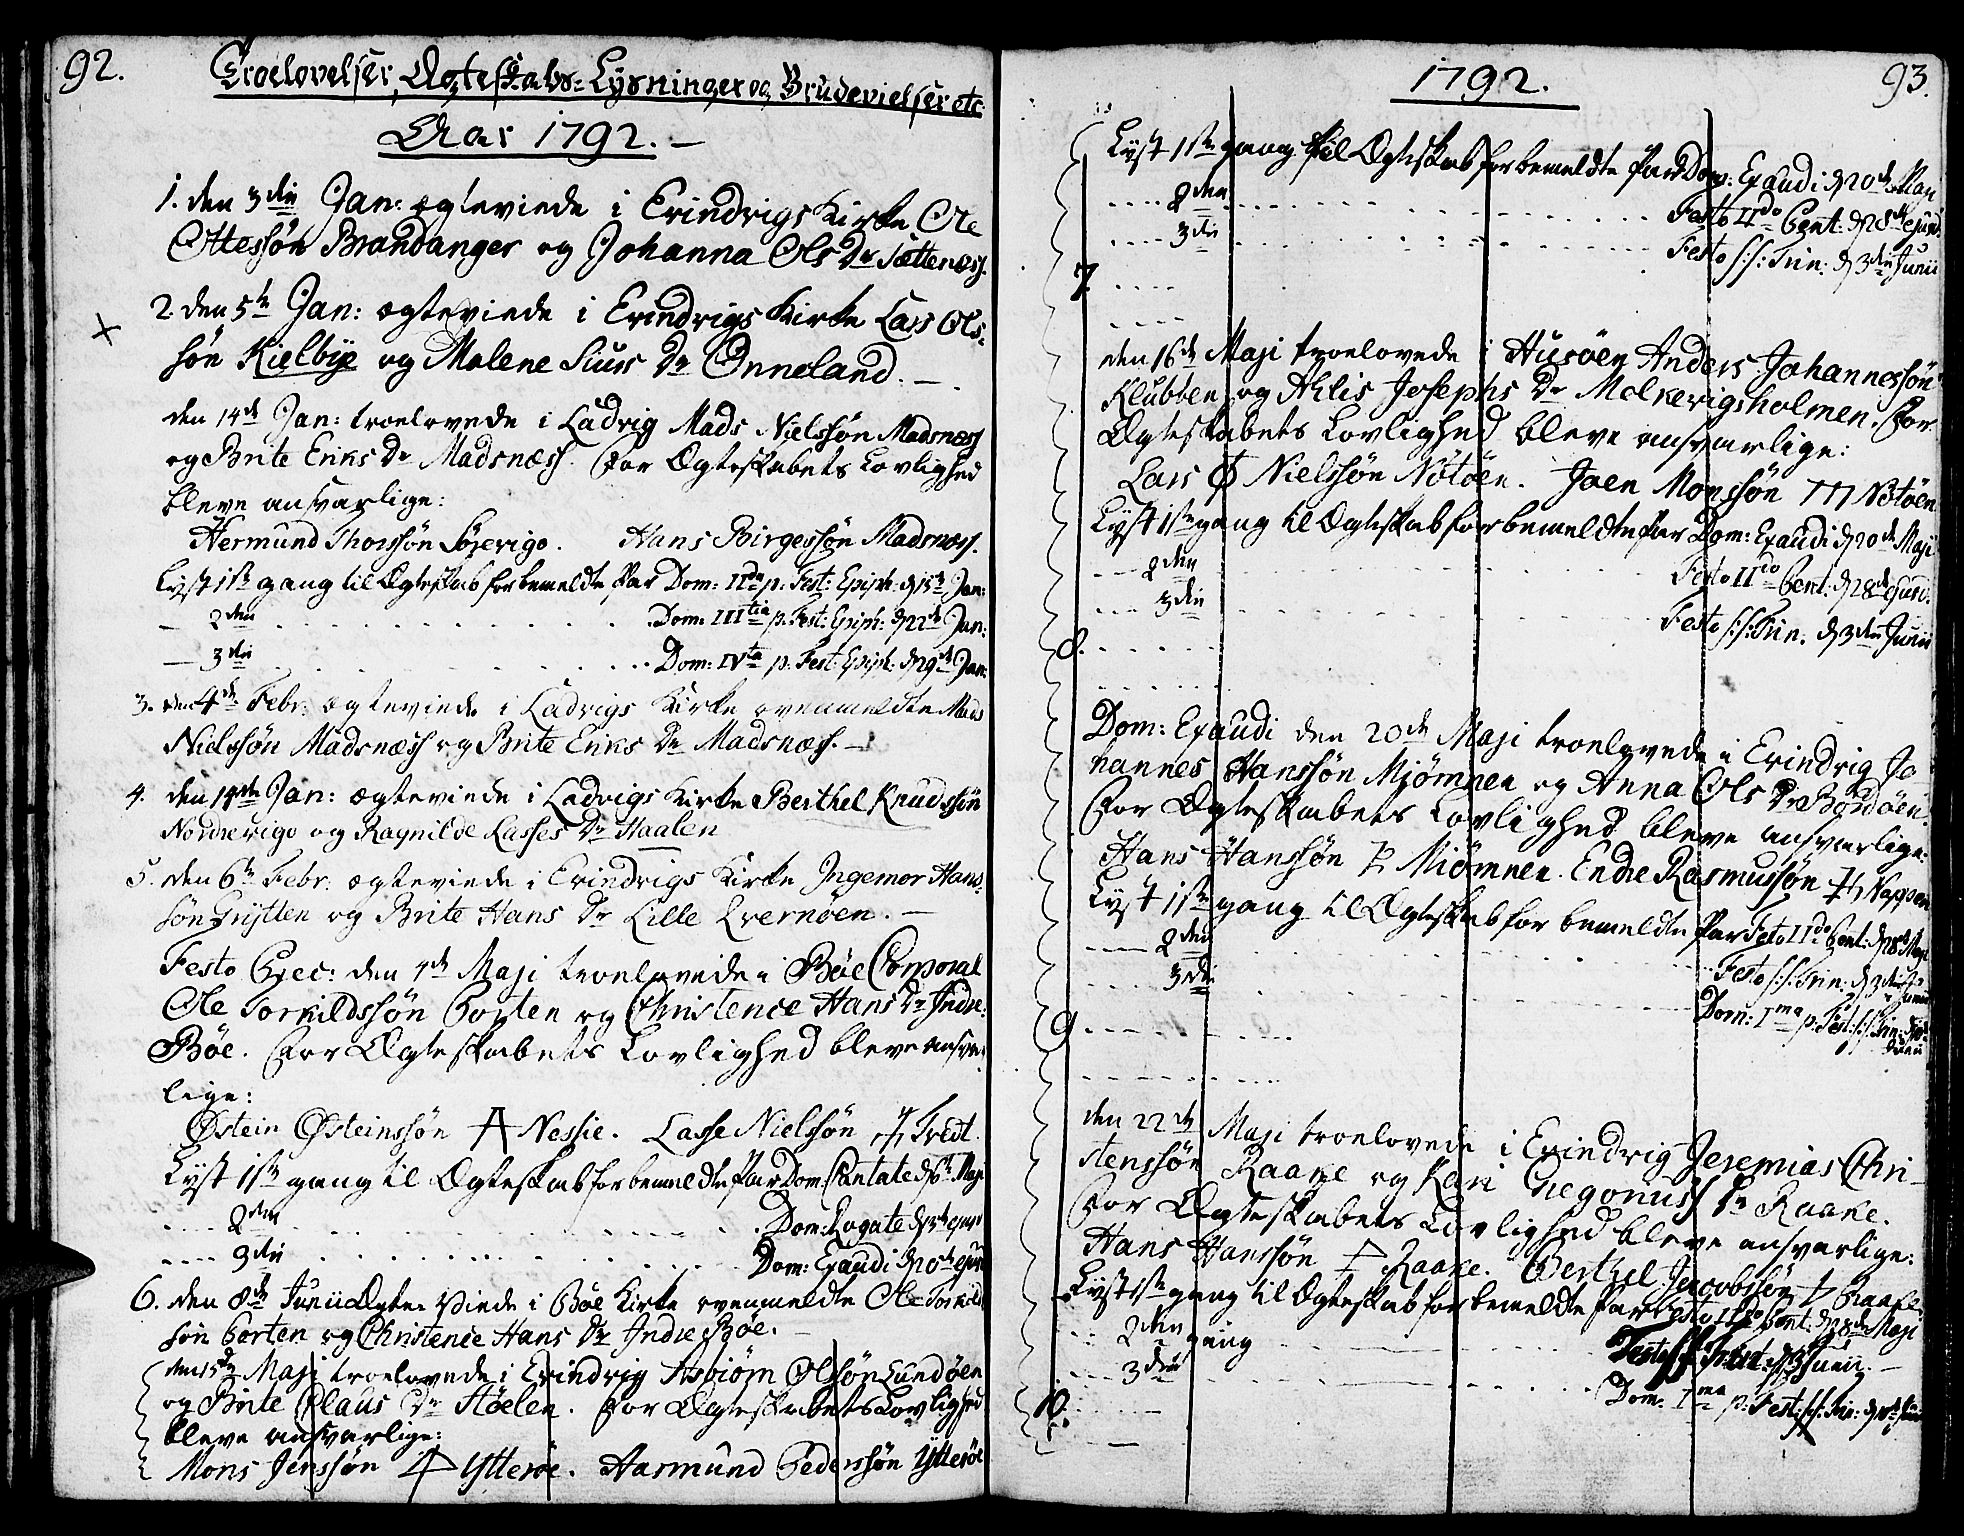 92.
Troelovelser, Ægteskabs-Lysninger og Brudevielser etc:
Aar 1792. –
1. den 3die Jan: ægteviede i Evindvigs Kirke Ole
Ottessøn Brandanger og Johanna Ols Dr Sættenæss.
2. den 5te Jan: ægteviede i Evindvigs Kirke Lars Ols-
søn Kielbye og Malene Siurs Dr Önneland. –
den 14de Jan: troelovede i Ladvig Mads Nielssøn Madsnæss
og Brite Eriks Dr Madsnæss. For Ægteskabets Lovlighed
bleve ansvarlige:
Hermund Thorssøn. Hans Birgessøn Madsnæss.
Lyst 1ste gang til Ægteskab for bemeldte Par Dom: IIda p. Fest: Epiph. d 15de Jan:
– 2den . . . . . Dom: IIItia p. Fest: Epiph: d 22de Jan:
– 3die . . . . . Dom: IVta p. Fest: Epiph. d 29de Jan:
3. den 4de Febr: ægteviede i Ladvigs Kirke ovenmeldte Mads
Nielssøn Madsnæss og Brite Eriks Dr Madsnæss. –
4. den Jan: ægteviede i Ladvigs Kirke Berthel Knudssøn
Nordrevigo og Ragnilde Lasses Dr Haalen
5. den 6te Febr: ægteviede i Evindvigs Kirke Ingemor Hans
søn og Brite Hans Dr Lille Qvernøen. –
Festo Prec: den 4de Maji troelovede i Bøe Corporal
Ole Torkildssøn Porten og Christence Hans Dr Indre-
Bøe. For Ægteskabets Lovlighed bleve ansvar-
lige:
Østein Østeinssøn Nessie. Lasse Nielssøn Tredt.
Lyst 1ste gang til Ægteskab for bemeldte Par Dom: Cantate d 6te Maji
.... 2den . . . . . Dom: Rogate d 13de ejusd
.... 3die . . . . . Dom: Exaudi d 20de ejusd
6. den 8de Junii Ægte Viede i Bøe Kirke ovenmeldte Ole Torkilds
søn Porten og Christence Hans Dr Indre Bøe.
den 15de Maji troelovede i Evindvig Asbiørn Olssøn Sundøen
og Brite Claus Dr Støelen. For Ægteskabets Lovlighed
bleve ansvarlige:
Mons Jenssøn Ytterøe. Aasmund Pederssøn Ytterøe
1792.
93.
Lyst 1ste gang til Ægteskab for bemeldte Par Dom: Exaudi d 20de Maji
.... 2den . . . . . Festo IIdo Pent: d 28de ejusd.
.... 3die . . . . . Festo s: s: Trin: d 3die Junii
7. ....
....
den 16de Maji troelovede i Husøen Anders Johannessøn
Klubben og Ahlis Josephs Dr Molkevigsholmen. For
Ægteskabets Lovlighed bleve ansvarlige:
Lars Nielssøn Nötöen. Joen Monssøn Nötöen
Lyst 1ste gang til Ægteskab for bemeldte Par Dom: Exaudi d 20de Maji
.... 2den . . . . . Festo IIdo Pent: d 28de ejusd.
.... 3die . . . . . Festo s: s: Trin. d 3die Junii
8. ......
......
Dom: Exaudi den 20de Maji troelovede i Evindvig Jo
hannes Hanssøn Mjømnen og Anna Ols Dr Bordøen.
For Ægteskabets Lovlighed bleve ansvarlige:
Hans Hanssøn Miømnen. Endre Rasmussøn Nappen
Lyst 1ste gang til Ægteskab for bemeldte Par Festo IIdo Pent: d 28de Maji
.... 2den . . . . . Festo s: s: Trin: d 3die Junii
.... 3die . . . . . Dom: Ima p. Fest: s: s: Trin: d 10de
Junii
9. ......
......
den 22de Maji troelovede i Evindvig Jeremias Chri-
stenssøn Raake og Kari Gregoriuss Dr Raake.
For Ægteskabets Lovlighed bleve ansvarlige:
Hans Hanssøn Raake. Berthel Jacobssøn Raake.
Lyst 1ste gang til Ægteskab for bemeldte Par Festo IIdo Pent: d 28de Maji
... 2den gang . . . . . Festo Trin: d 3 Junii. –
... 3die . . . . . Dom: Ima p. Fest: s: s: Trin: d 10de Junii
10. ....
....